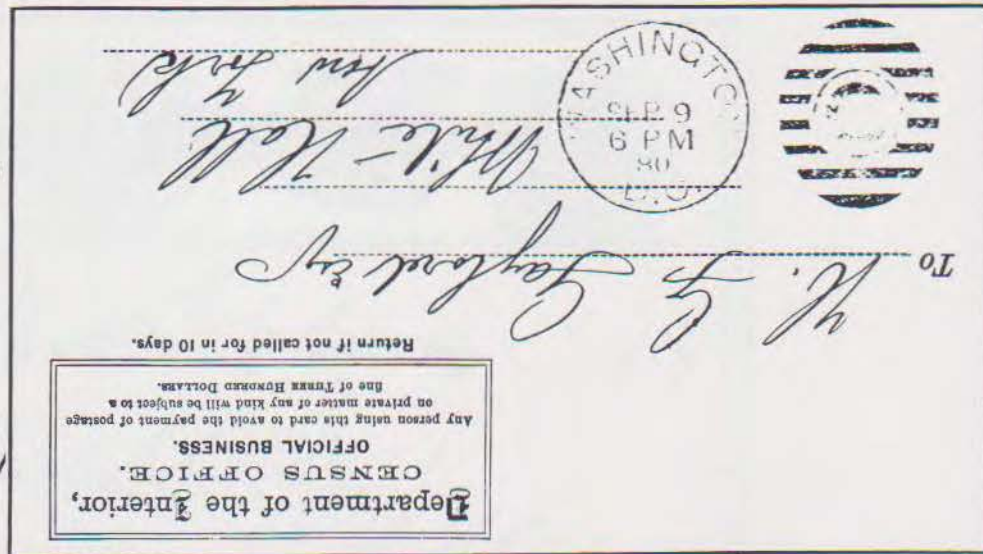 Department of the Interior,
CENSUS OFFICE.
OFFICIAL BUSINESS.
Any person using this card to avoid the payment of postage
on private matter of any kind will be subject to a
fine of THREE HUNDRED DOLLARS.
Return if not called for in 10 days.
To
Gaylord Esq
Hall
New York
WASHINGTO
SEP 9
6 PM
80
D.C.